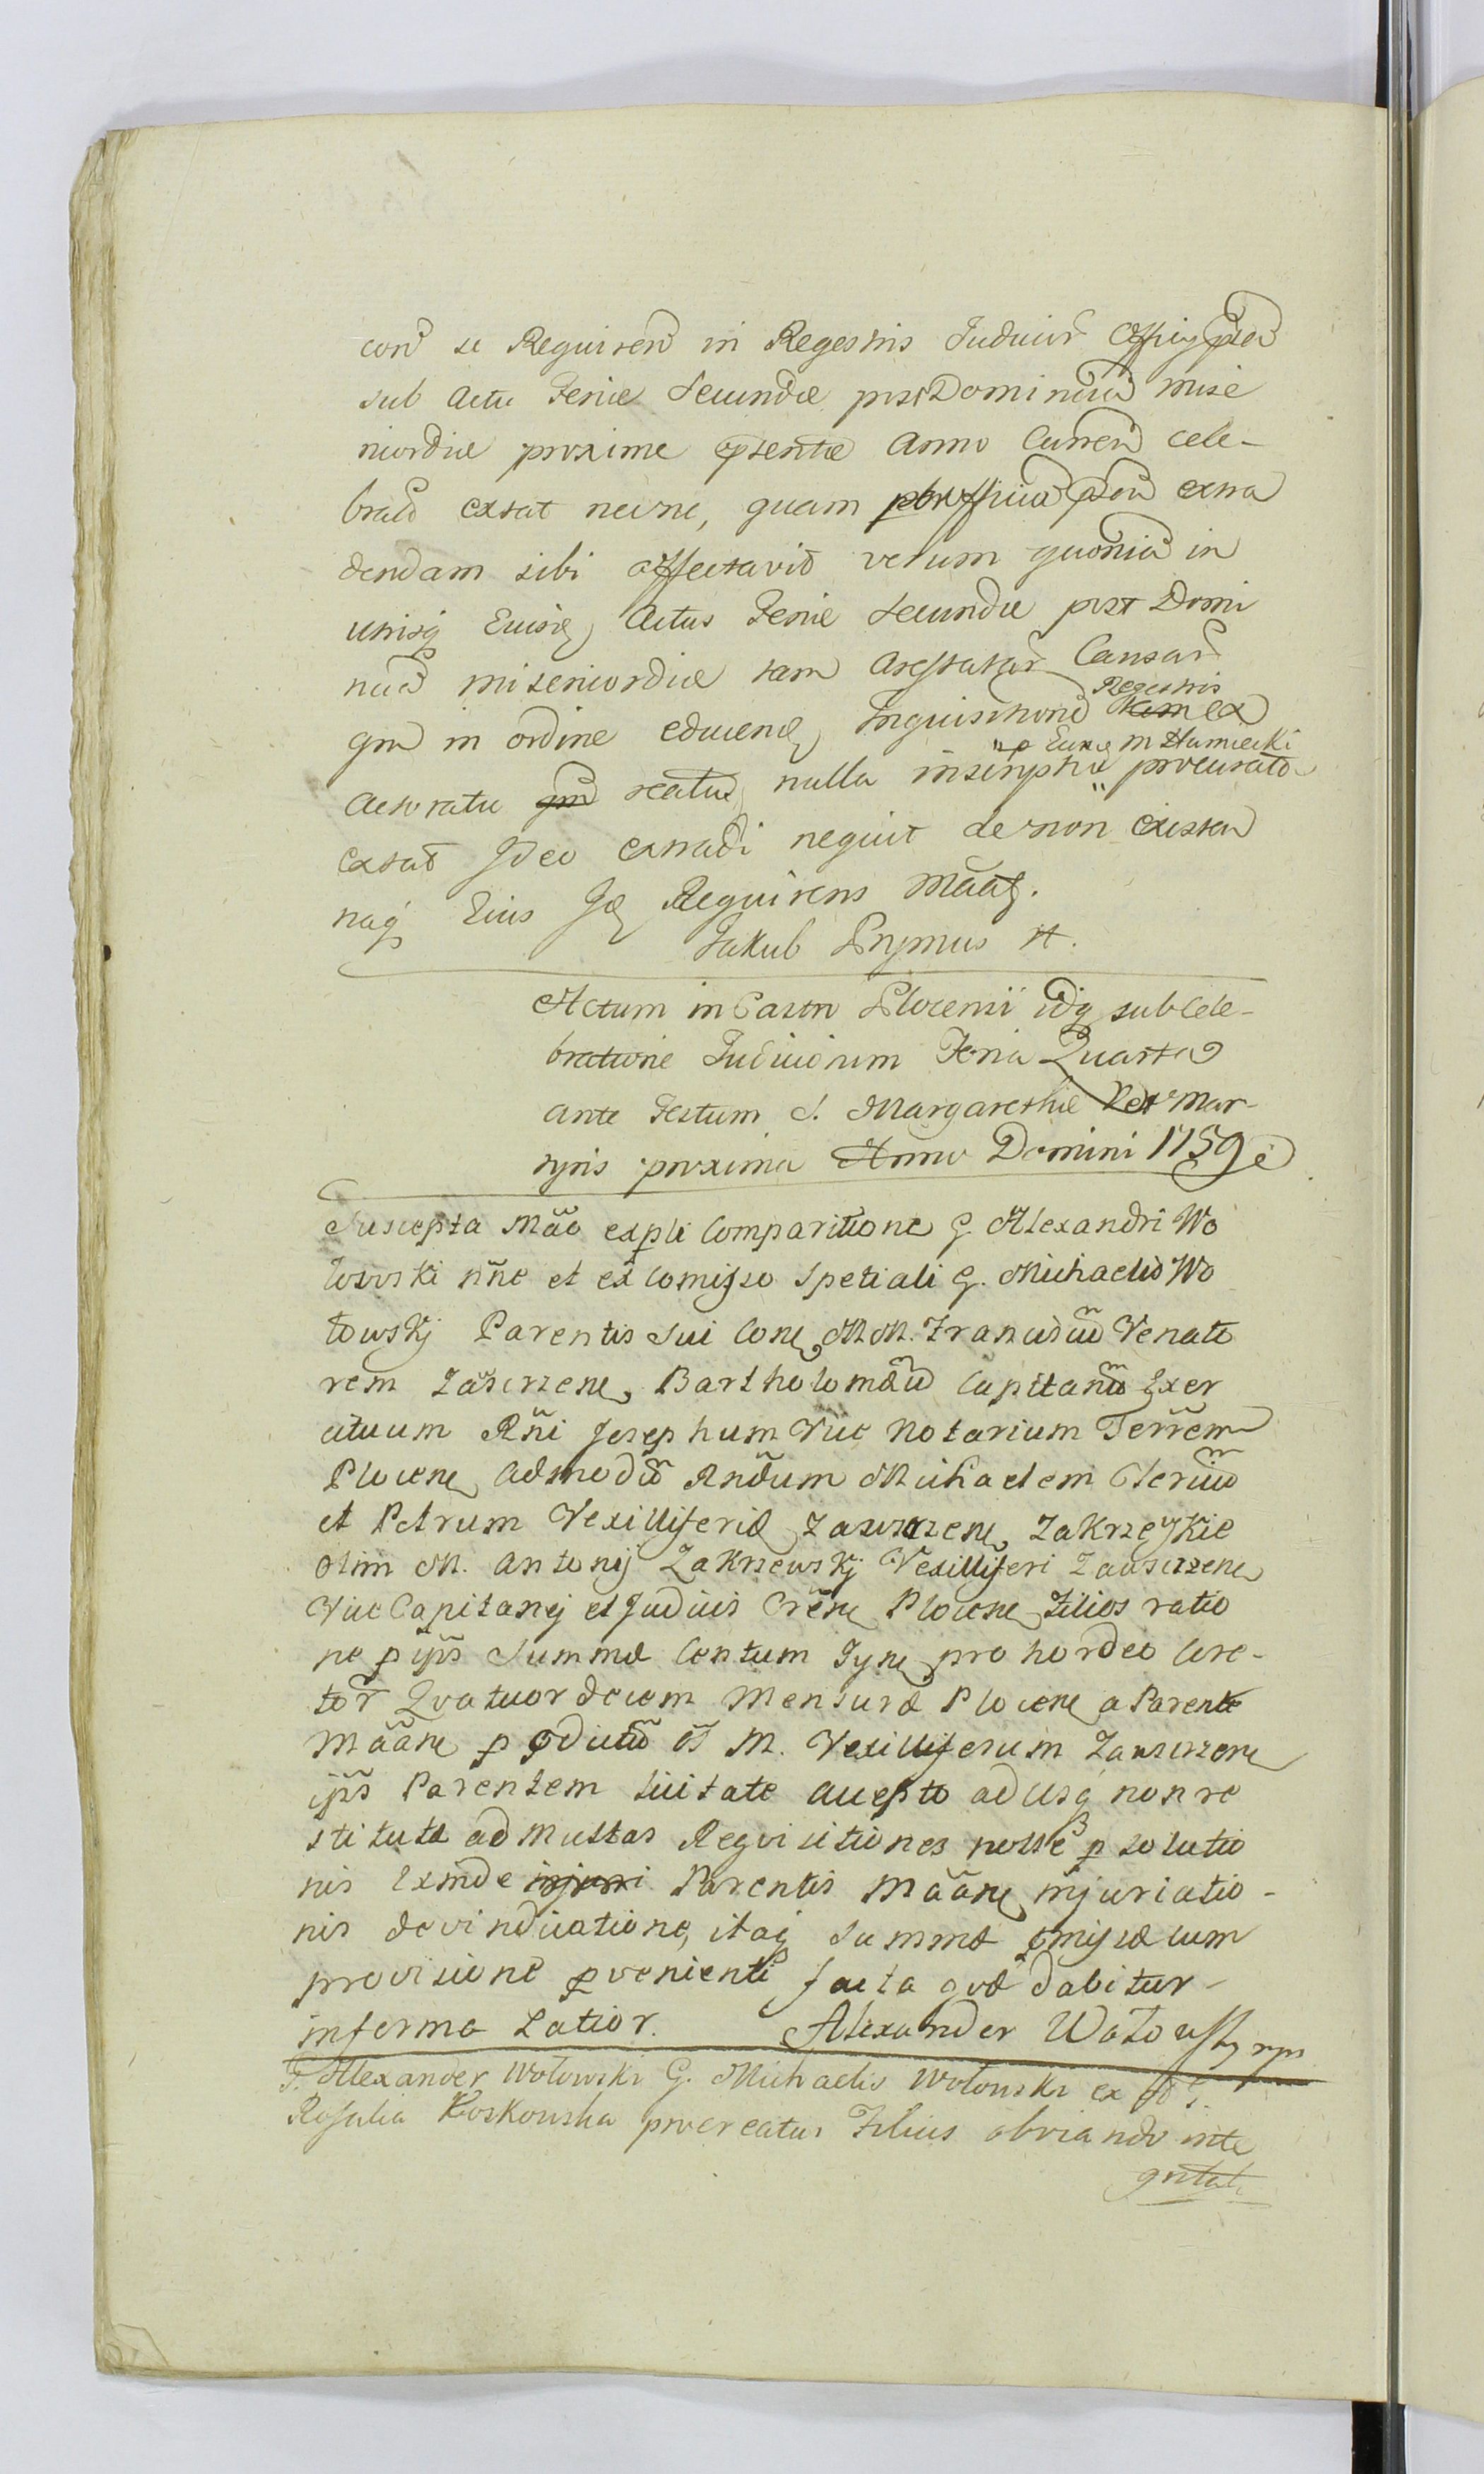 con̄ se Requiren̄ in Regestris Judicior̄ Officy pn̄tis
sub Actu Feriæ Secundæ post Dominicā mise
ricordiæ proxime p̄teritæ Anno Curren̄ cele-
brat̄ extat necne, quam extra
dendam sibi affectavit verum quoniā in
Actus Feriæ Secundæ post Domi
nicā misericordiæ tam Arestatar̄ Causar̄
qm̄ in ordine educenđ Inquisitionū Regestris
~~tam~~ ex
Actoratu ~~qm̄~~ reatus nulla inscriptio procurato
M Humiecki
extat Ideo extradi nequit de non existen
naq̨ Eius Idq̨ Requirens Māat̨.
Jakub Prymus
Actum in Castro Plocensi idq̨ sub Cele-
bratione Judiciorum Feria Quarta
ante Festum S. Margarethæ Vir: Mar-
tyris proxima Anno Domini 1759 o
Suscepta M̃ao expli Comparitione G. Alexandri Wo
łowski ñne et ex Comisso Spetiali G. Michaelis Wo
łowskj Parentis sui Cone MM. Franciscū Venato
rem Zawsrzene, Bartholomæū Capitanū Exer
cituum Rñi Josephum Vice Notarium Terrēm
Plocene, Admodū Rnđum Michaelem Clericū
et Petrum Vexilliferidæ Zawsrzene, Zakrzewskie
olim M. Antonij Zakrzewskj Vexilliferi Zawsrzene
Vice Capitanej et Judicis Cr̃ene Plocene Filios ratio
ne p ip̄s Summæ Centum Tyne pro hordeo Core-
tor̄ Qvatuordecem Mensuræ Plocene a Parente
M̃ãane p ōdictū ōl M. Vexilliferum Zawsrzene
ip̄s Parentem licitate accepto adusq̨ non re
stitutæ ad Multas Reqvisitiones nosse p solutio
nis Exinde ~~injuri~~ Parentis M̃ãane injuriatio-
nis devindicatione, itaq̨ Summæ ōmissæ cum
provisione pvenienti facta qvæ dabitur
in forma Latior. Alexander Wołowskj mp
G. Alexander Wołowski G. Michaelis Wołowski ex G.
Rosalia Koskowska procreatus Filius obviando inte
gritati